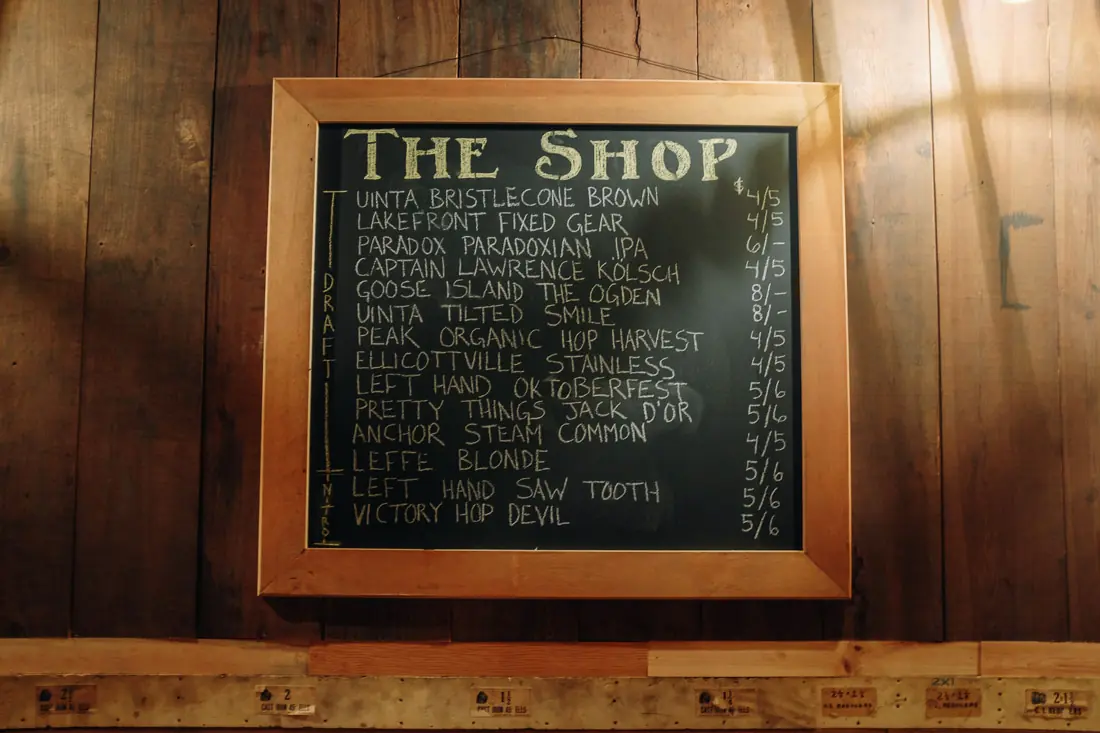 THE SHOP
UINTA BRISTLECONE BROWN $4/5
LAKEFRONT FIXED GEAR 4/5
PARADOX PARADOXIAN IPA 6/-
CAPTAIN LAWRENCE KÖLSCH 4/5
GOOSE ISLAND THE OGDEN 8/-
UINTA TILTED SMILE 8/-
PEAK ORGANIC HOP HARVEST 4/5
ELLICOTTVILLE STAINLESS 4/5
LEFT HAND OKTOBERFEST 5/6
PRETTY THINGS JACK D'OR 5/6
ANCHOR STEAM COMMON 4/5
LEFFE BLONDE 5/6
LEFT HAND SAW TOOTH 5/6
VICTORY HOP DEVIL 5/6
DRAFT
NITRO
2
1½